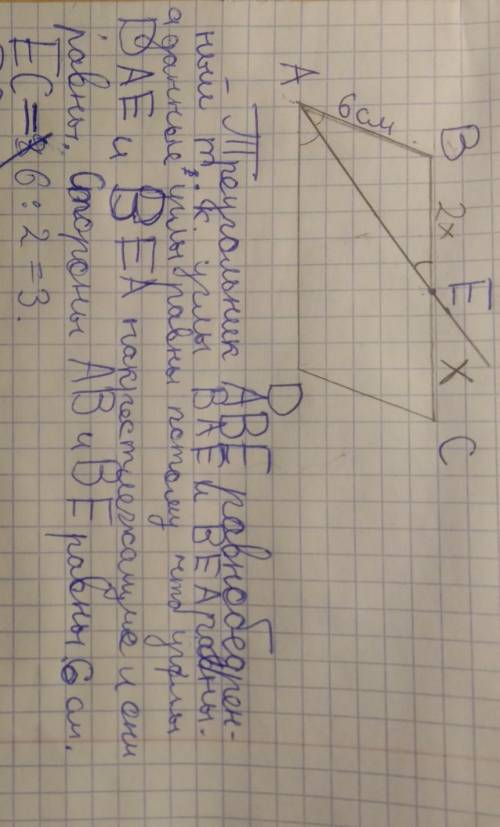 B 2x E x C
6см
A
D
- Треугольник ABE равнобедрен-
ным т.к. углы BAE и BEA равны.
а данные углы равны потому что углы
DAE и BEA накрест лежащие и они
равны. Стороны AB и BE равны 6 см.
EC = 6 : 2 = 3.